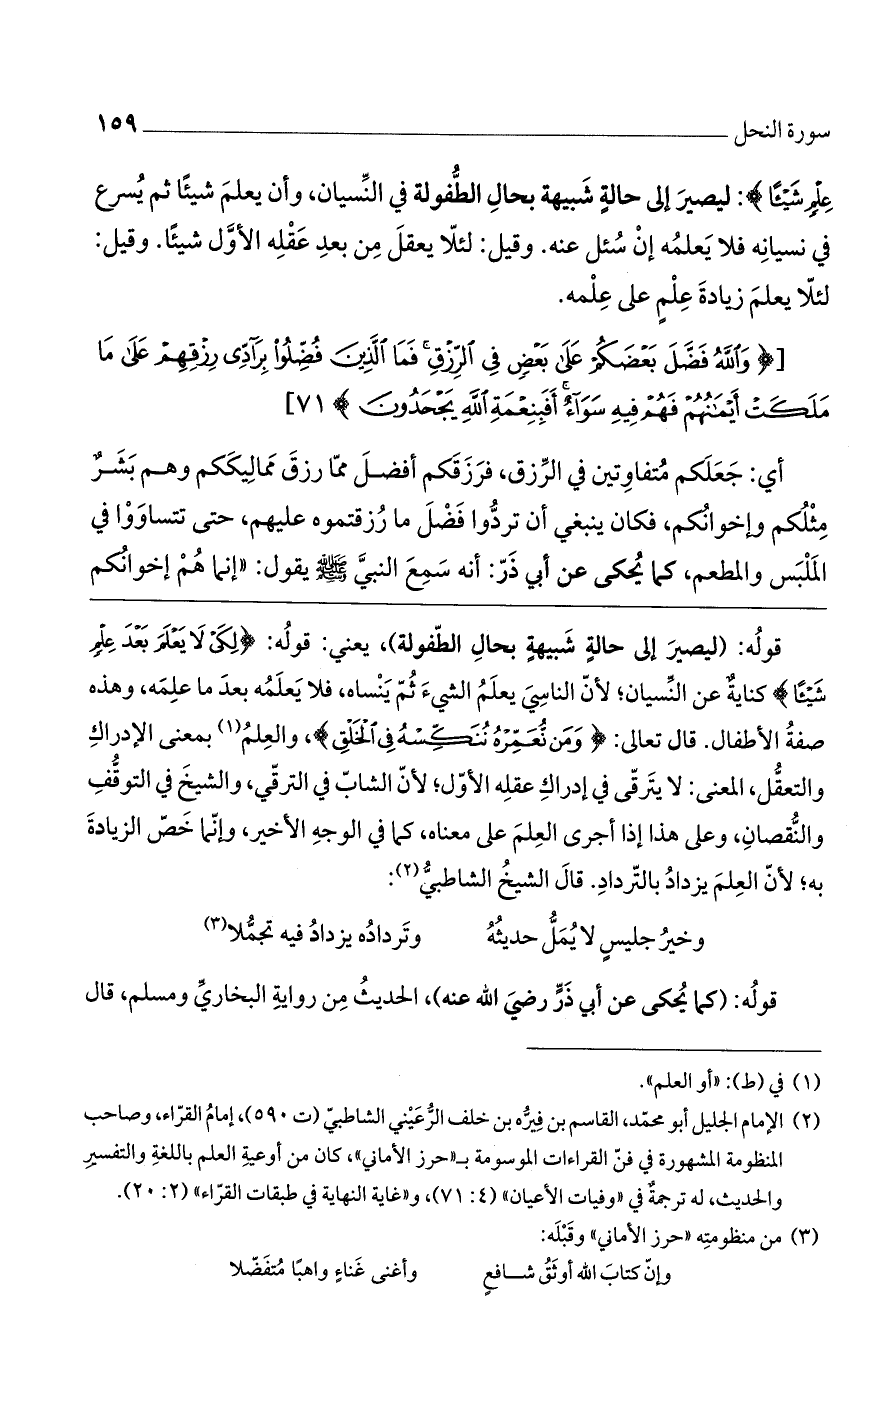 سورة النحل ١٥٩
عِلْمٍ شَيْئًا ﴾: ليصيرَ إلى حالةٍ شَبيهة بحالِ الطُّفولة في النِّسيان، وأن يعلمَ شيئًا ثم يُسرع
في نسيانِه فلا يَعلمُه إنْ سُئل عنه. وقيل: لئلّا يعقلَ مِن بعدِ عَقْلِه الأوَّل شيئًا. وقيل:
لئلّا يعلمَ زيادةَ عِلْمٍ على عِلْمه.
[﴿ وَٱللَّهُ فَضَّلَ بَعْضَكُمْ عَلَىٰ بَعْضٍ فِى ٱلرِّزْقِ ۚ فَمَا ٱلَّذِينَ فُضِّلُوا۟ بِرَآدِّى رِزْقِهِمْ عَلَىٰ مَا
مَلَكَتْ أَيْمَٰنُهُمْ فَهُمْ فِيهِ سَوَآءٌ ۚ أَفَبِنِعْمَةِ ٱللَّهِ يَجْحَدُونَ ﴾ ٧١]
أي: جَعَلَكم مُتفاوِتين في الرِّزق، فرَزَقكم أفضلَ ممّا رزقَ مَمالِيكَكم وهم بَشَرٌ
مِثْلُكم وإخوانُكم، فكان ينبغي أن تردُّوا فَضْلَ ما رُزقتموه عليهم، حتى تتساوَوْا في
المَلْبَس والمطعم، كما يُحكى عن أبي ذَرّ: أنه سَمِعَ النبيَّ ﷺ يقول: «إنما هُمْ إخوانُكم
قولُه: (ليصيرَ إلى حالةٍ شَبيهةٍ بحالِ الطّفولة)، يعني: قولُه: ﴿لِكَىْ لَا يَعْلَمَ بَعْدَ عِلْمٍ
شَيْئًا ﴾ كنايةٌ عن النِّسيان؛ لأنّ الناسِيَ يعلَمُ الشيءَ ثُمّ يَنْساه، فلا يَعلَمُه بعدَ ما علِمَه، وهذه
صفةُ الأطفال. قال تعالى: ﴿ وَمَن نُّعَمِّرْهُ نُنَكِّسْهُ فِى ٱلْخَلْقِ ﴾، والعِلمُ(١) بمعنى الإدراكِ
والتعقُّل، المعنى: لا يتَرقّى في إدراكِ عقلِه الأوّل؛ لأنّ الشابّ في الترقّي، والشيخَ في التوقُّفِ
والنُّقصانِ، وعلى هذا إذا أجرى العِلمَ على معناه، كما في الوجهِ الأخير، وإنّما خَصّ الزيادةَ
به؛ لأنّ العِلمَ يزدادُ بالتّردادِ. قالَ الشيخُ الشاطبيُّ(٢):
وخيرُ جليسٍ لا يُمَلُّ حديثُهُ وتَردادُه يزدادُ فيه تجمُّلا(٣)
قولُه: (كما يُحكى عن أبي ذَرٍّ رضيَ الله عنه)، الحديثُ مِن روايةِ البخاريِّ ومسلم، قال
(١) في (ط): «أو العلم».
(٢) الإمام الجليل أبو محمّد، القاسم بن فِيرُّه بن خلف الرُّعَيْني الشاطبيّ (ت ٥٩٠)، إمامُ القرّاء، وصاحب
المنظومة المشهورة في فنّ القراءات الموسومة بـ«حرز الأماني»، كان من أوعيةِ العلم باللغةِ والتفسيرِ
والحديث، له ترجمةٌ في «وفيات الأعيان» (٤: ٧١)، و«غاية النهاية في طبقات القرّاء» (٢: ٢٠).
(٣) من منظومتِه «حرز الأماني» وقَبْلَه:
وإنّ كتابَ الله أوثَقُ شافعٍ وأغنى غَناءٍ واهبًا مُتفَضّلا